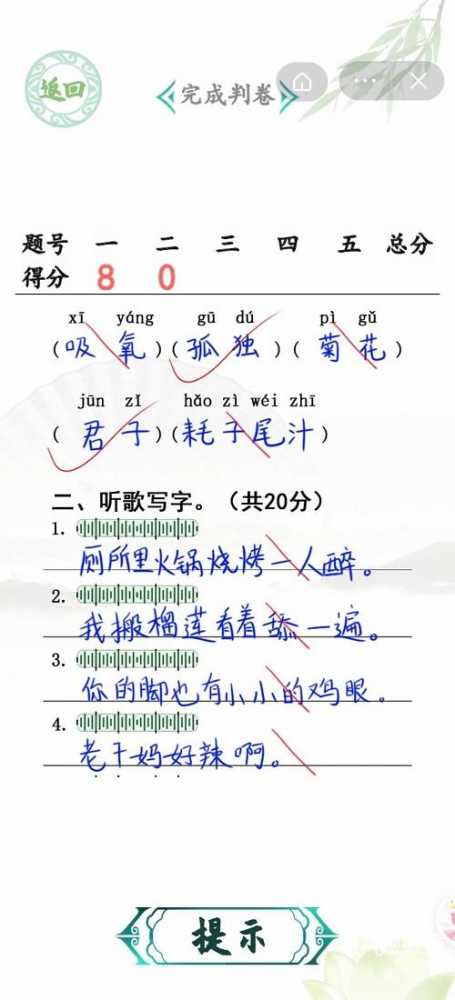 返回
完成判卷
题号 一 二 三 四 五 总分
得分 8 0
xī yáng gū dú pì gǔ
(吸氧)(孤独)(菊花)
jūn zǐ hǎo zì wéi zhī
(君子)(耗子尾汁)
二、听歌写字。(共20分)
1.
厕所里火锅烧烤一人醉。
2.
我搬榴莲看着舔一遍。
3.
你的脚也有小小的鸡眼。
4.
老干妈好辣啊。
提示